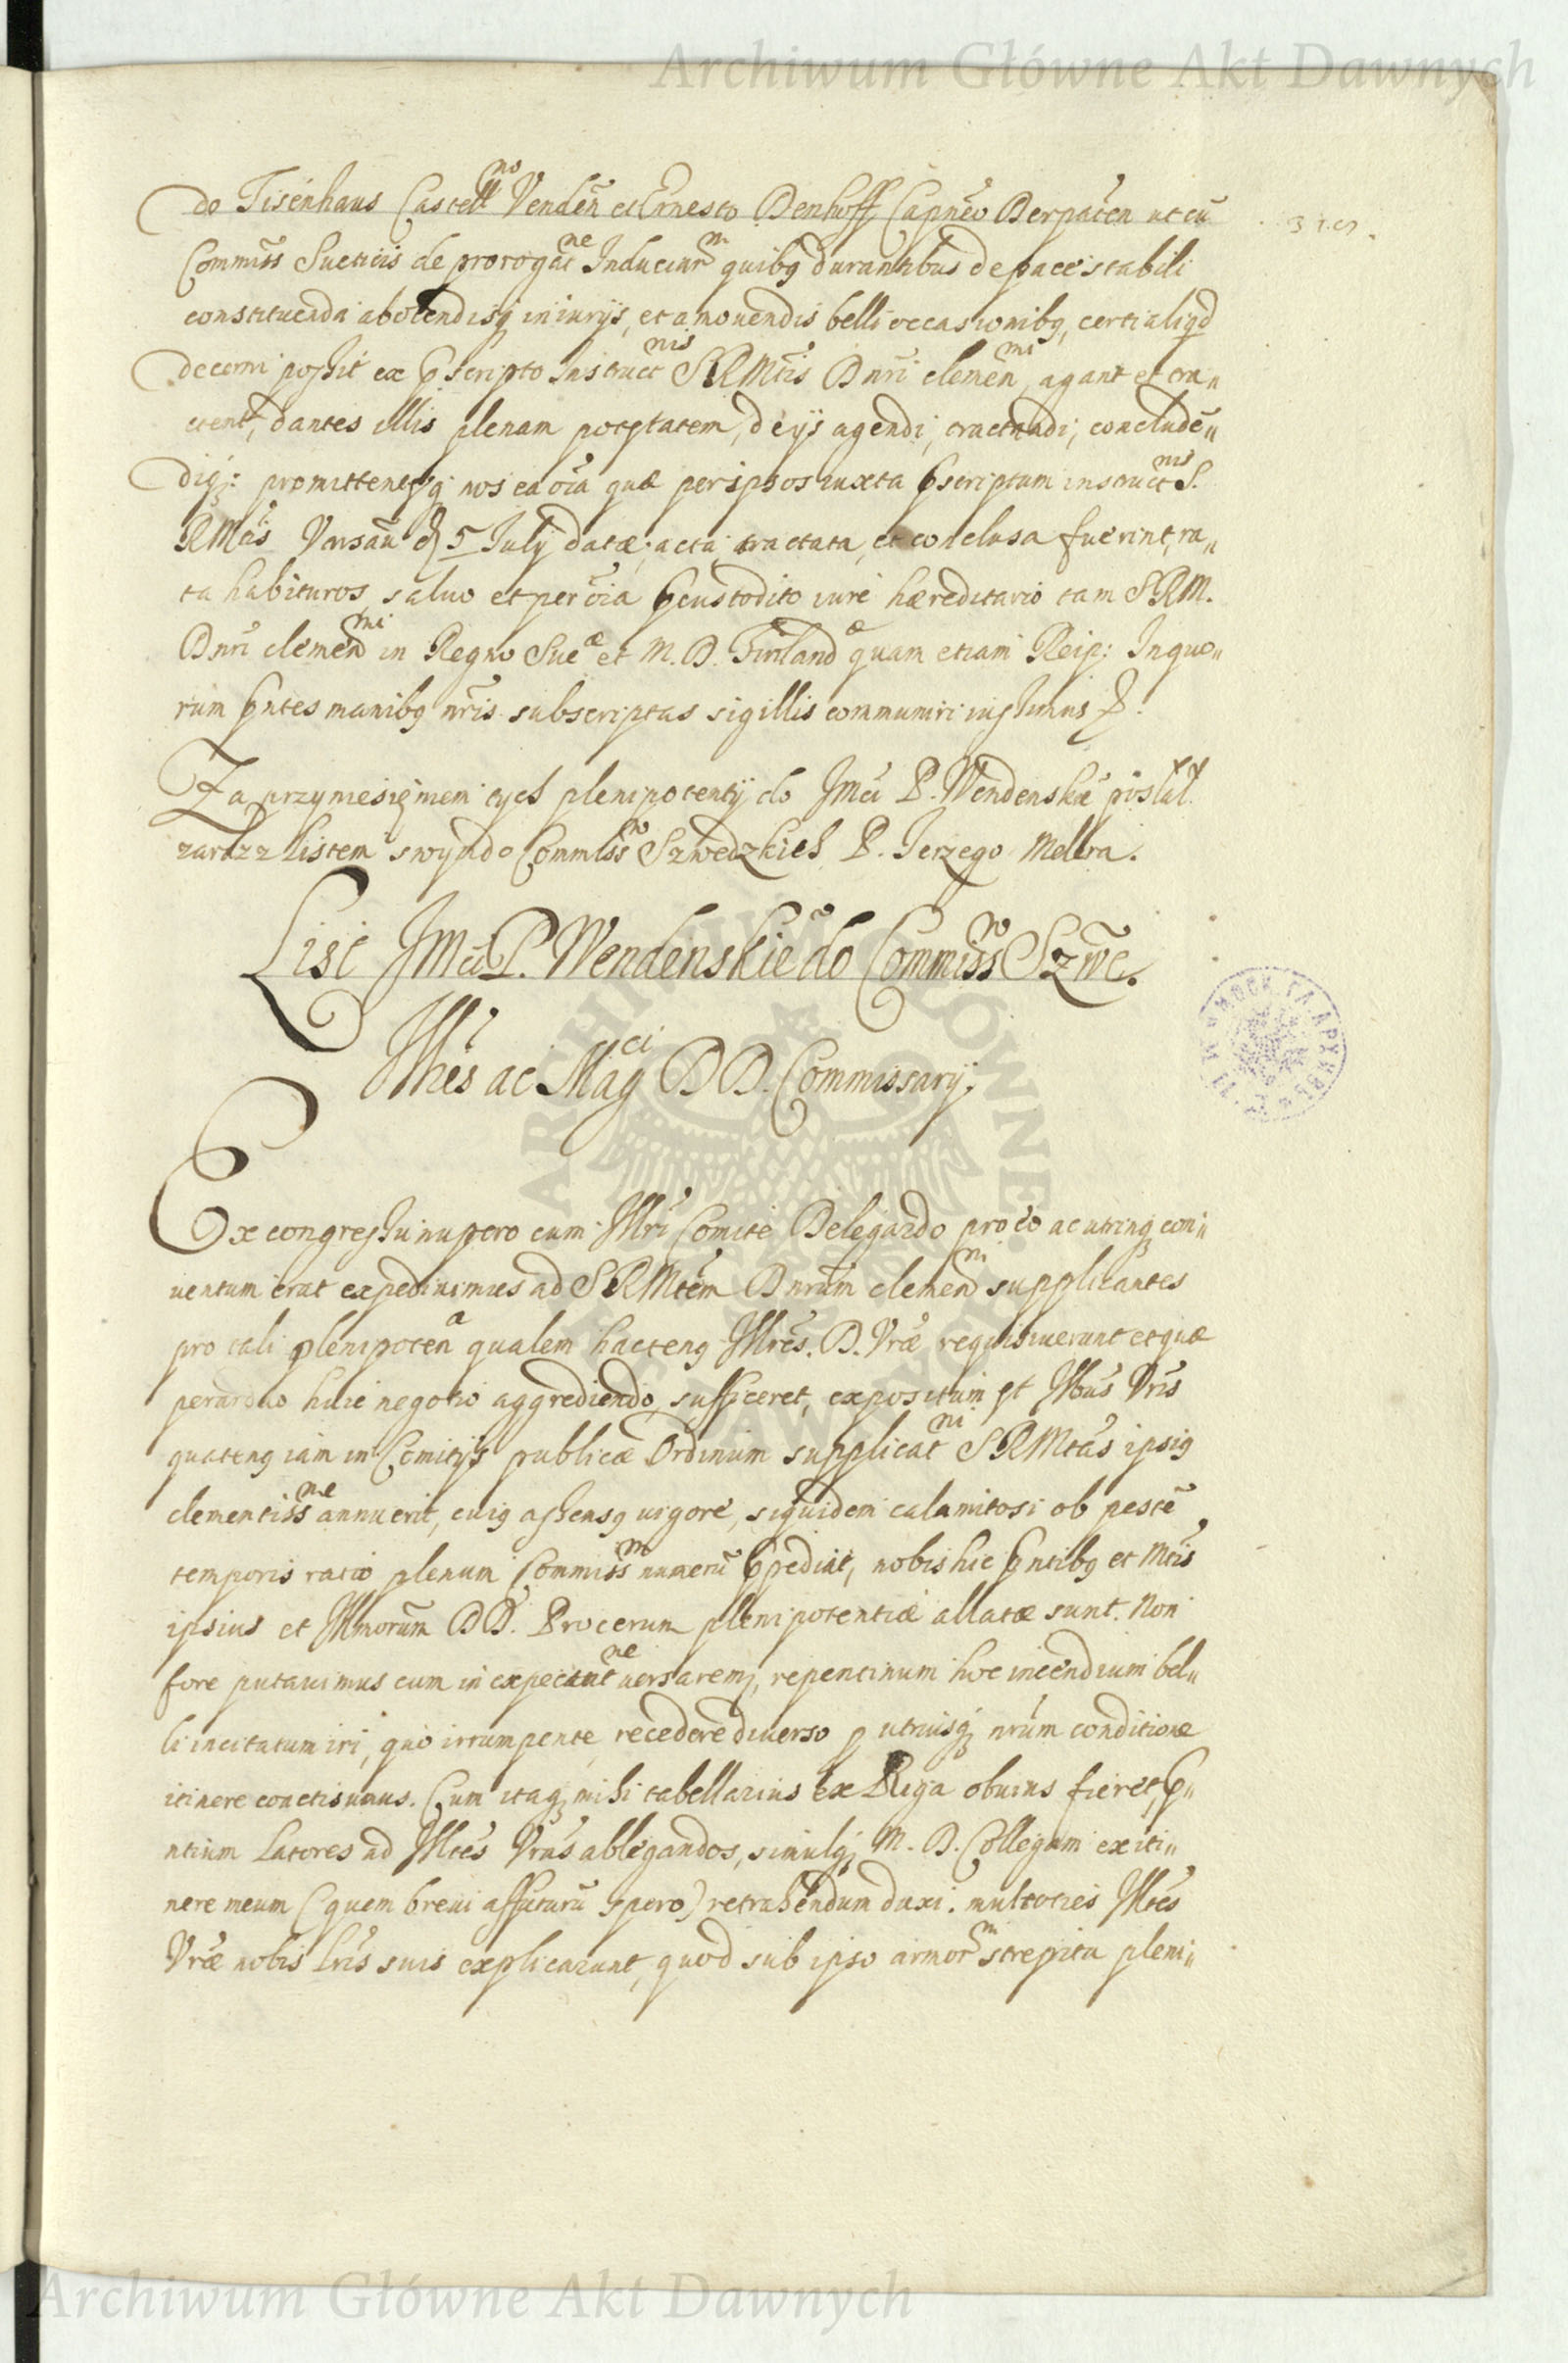 Archiwum Główne Akt Dawnych
do Tisenhaus Castell^no Venden̄ et Ernesto Denhoff Capnēo Derpaten̄ ut cū
Commiss Sueticis de prorogāc^ne Induciar^m quibꝫ durantibus de pace stabili
constituenda abolendisqꝫ iniurijs, et amouendis belli occasionibꝫ, certi aliqd
decerni possit ex pscripto Instruct^nis SRMtis Dnri clemen^mi, agant et tra„
ctent, dantes illis plenam potestatem, de ijs agendi, tractandi, concludē„
diqꝫ: promittentesqꝫ nos ea oīa quæ per ipsos iuxta pscriptum instruct^nis S.
RMtis Varsau d 5 July datæ, acta, tractata, et conclusa fuerint, ra„
ta habituros, saluo et per oīa pcustodito iure hæreditario tam SRM.
Dnri clemen^mi in Regno Sue^æ et M. D. Finland^æ quam etiam Reip: In quo„
rum pntes manibꝫ nris subscriptas sigillis communiri iussimus
Za przyniesięniem tych plenipotentij do Jmci P. Wendenskie posłał
zaraz z listem swym do Commiss^w Szwedzkich P. Jerzego Mellra.
List JMci P. Wendenskie do Commiss^w Szwe.
Illres ac Mag^ci DD. Commissarij.
Ex congressu nupero cum Illri Comite Delegardo pro eo ac utrinqꝫ con„
uentum erat expediuimus ad SRMtem Dnrum clemen^m supplicantes
pro tali plenipoten^a qualem hactenꝫ Illres. D. Vræ requisiuerunt et quæ
per arduo huic negotio aggrediendo, sufficeret, expositum et Illbus Vris
quatenꝫ iam in Comitijs publicæ Ordinum supplicat^ni SRMtas ipsiꝫ
clementiss^me annuerit, cuiꝫ assensꝫ uigore, siquidem calamitosi ob pestē
temporis ratio plenum Commiss^m numerū ppediat, nobis hic pntibꝫ et Mtis
ipsius et Illmorum DD. Procerum plenipotentiæ allatæ sunt. Non
fore putauimus cum in expectat^ne uersaremꝫ, repentinum hoc incendium bel„
li incitatum iri, quo irrumpente, recedere diuerso p utriusqꝫ nrum conditione
itinere coacti sumus. Cum itaqꝫ mihi tabellarius ex Riga obuius fieret, p„
ntium Latores ad Illtes Vras ablegandos, simulqꝫ M. D. Collegam ex iti„
nere meum (quem breui affuturū spero) retrahendum duxi. multoties Illtes
Vræ nobis Lris suis explicarunt, quod sub ipso armor^m strepitu pleni„
Archiwum Główne Akt Dawnych